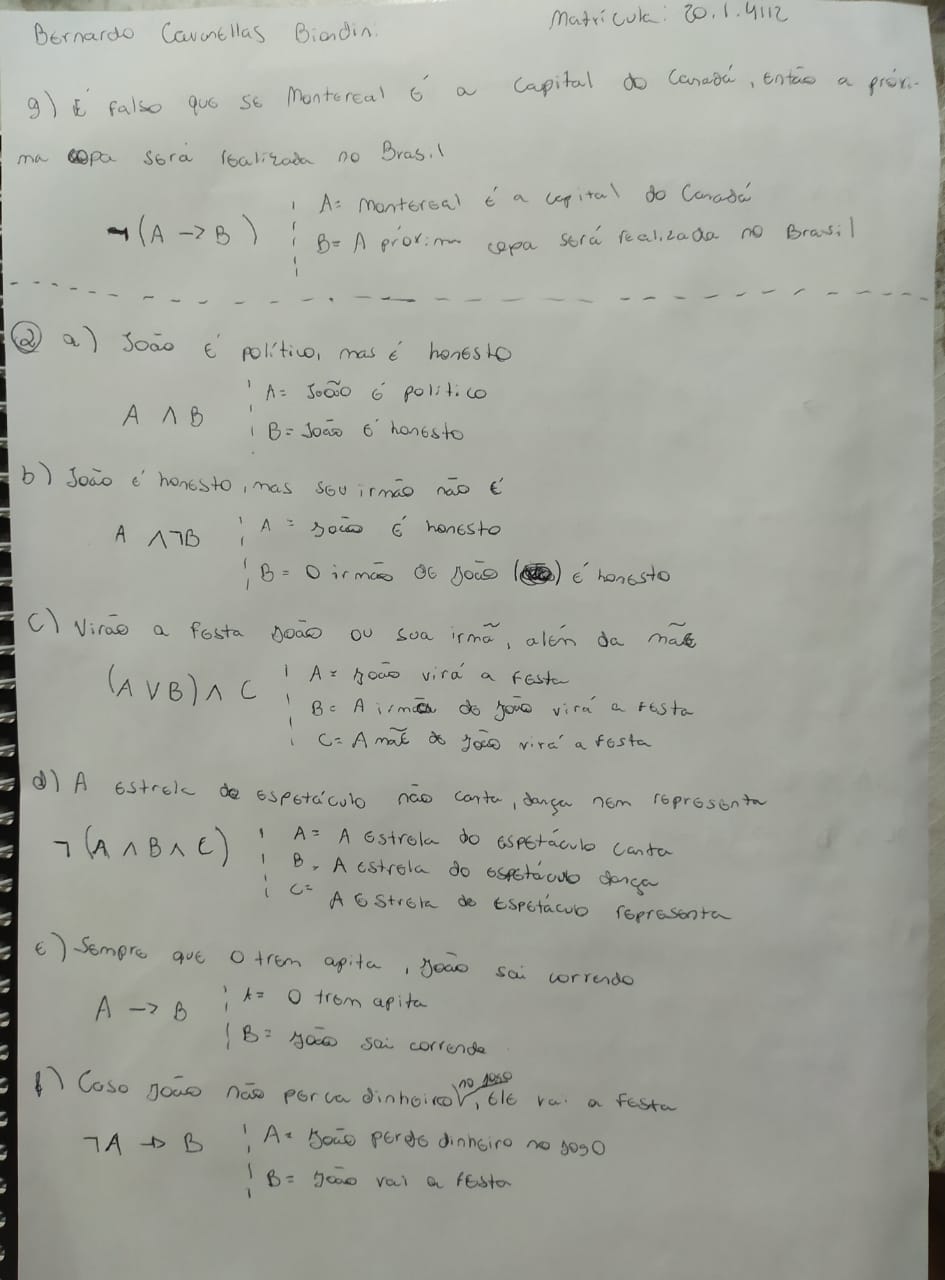 Bernardo Cavonellas Biondin. Matrícula: 20.1.4112
g) É falso que se Montereal é a capital do Canadá, então a próxi-
ma copa será realizada no Brasil
¬(A -> B) A= Montereal é a capital do Canadá
B= A próxima copa será realizada no Brasil
2 a) João é político, mas é honesto
A ∧ B A= João é político
B= João é honesto
b) João é honesto, mas seu irmão não é
A ∧¬B A = João é honesto
B = O irmão de João ( ) é honesto
c) Virão a festa João ou sua irmã, além da mãe
(A ∨ B) ∧ C A= João virá a festa
B= A irmã do João virá a festa
C= A mãe do João virá a festa
d) A estrela do espetáculo não canta, dança nem representa
¬(A ∧ B ∧ C) A= A estrela do espetáculo canta
B= A estrela do espetáculo dança
C=
A estrela do espetáculo representa
e) Sempre que o trem apita, João sai correndo
A -> B A= O trem apita
B= João sai correndo
f) Caso João não perca dinheiro no jogo, ele vai a festa
¬A -> B A= João perde dinheiro no jogo
B= João vai a festa